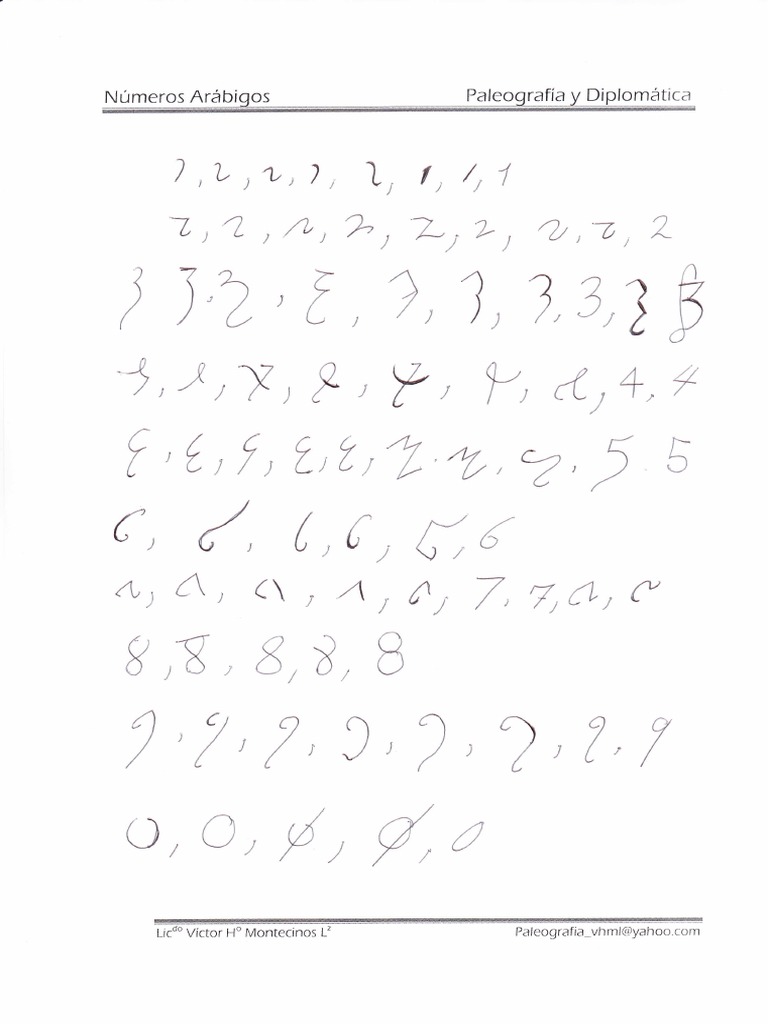 Números Arábigos Paleografía y Diplomática
1, 1, 1, 1, 1, 1, 1, 1
2, 2, 2, 2, 2, 2, 2, 2, 2
3 3. 3, 3, 3, 3, 3, 3, 3 3
4, 4, 4, 4, 4, 4, 4, 4, 4
5, 5, 5, 5, 5, 5. 5, 5. 5. 5
6, 6, 6, 6, 6, 6
7, 7, 7, 7, 7, 7, 7, 7, 7
8, 8, 8, 8, 8
9, 9, 9, 9, 9, 9, 9. 9
0, 0, 0, 0, 0
Lic^do Víctor H° Montecinos L²
Paleografia_vhml@yahoo.com